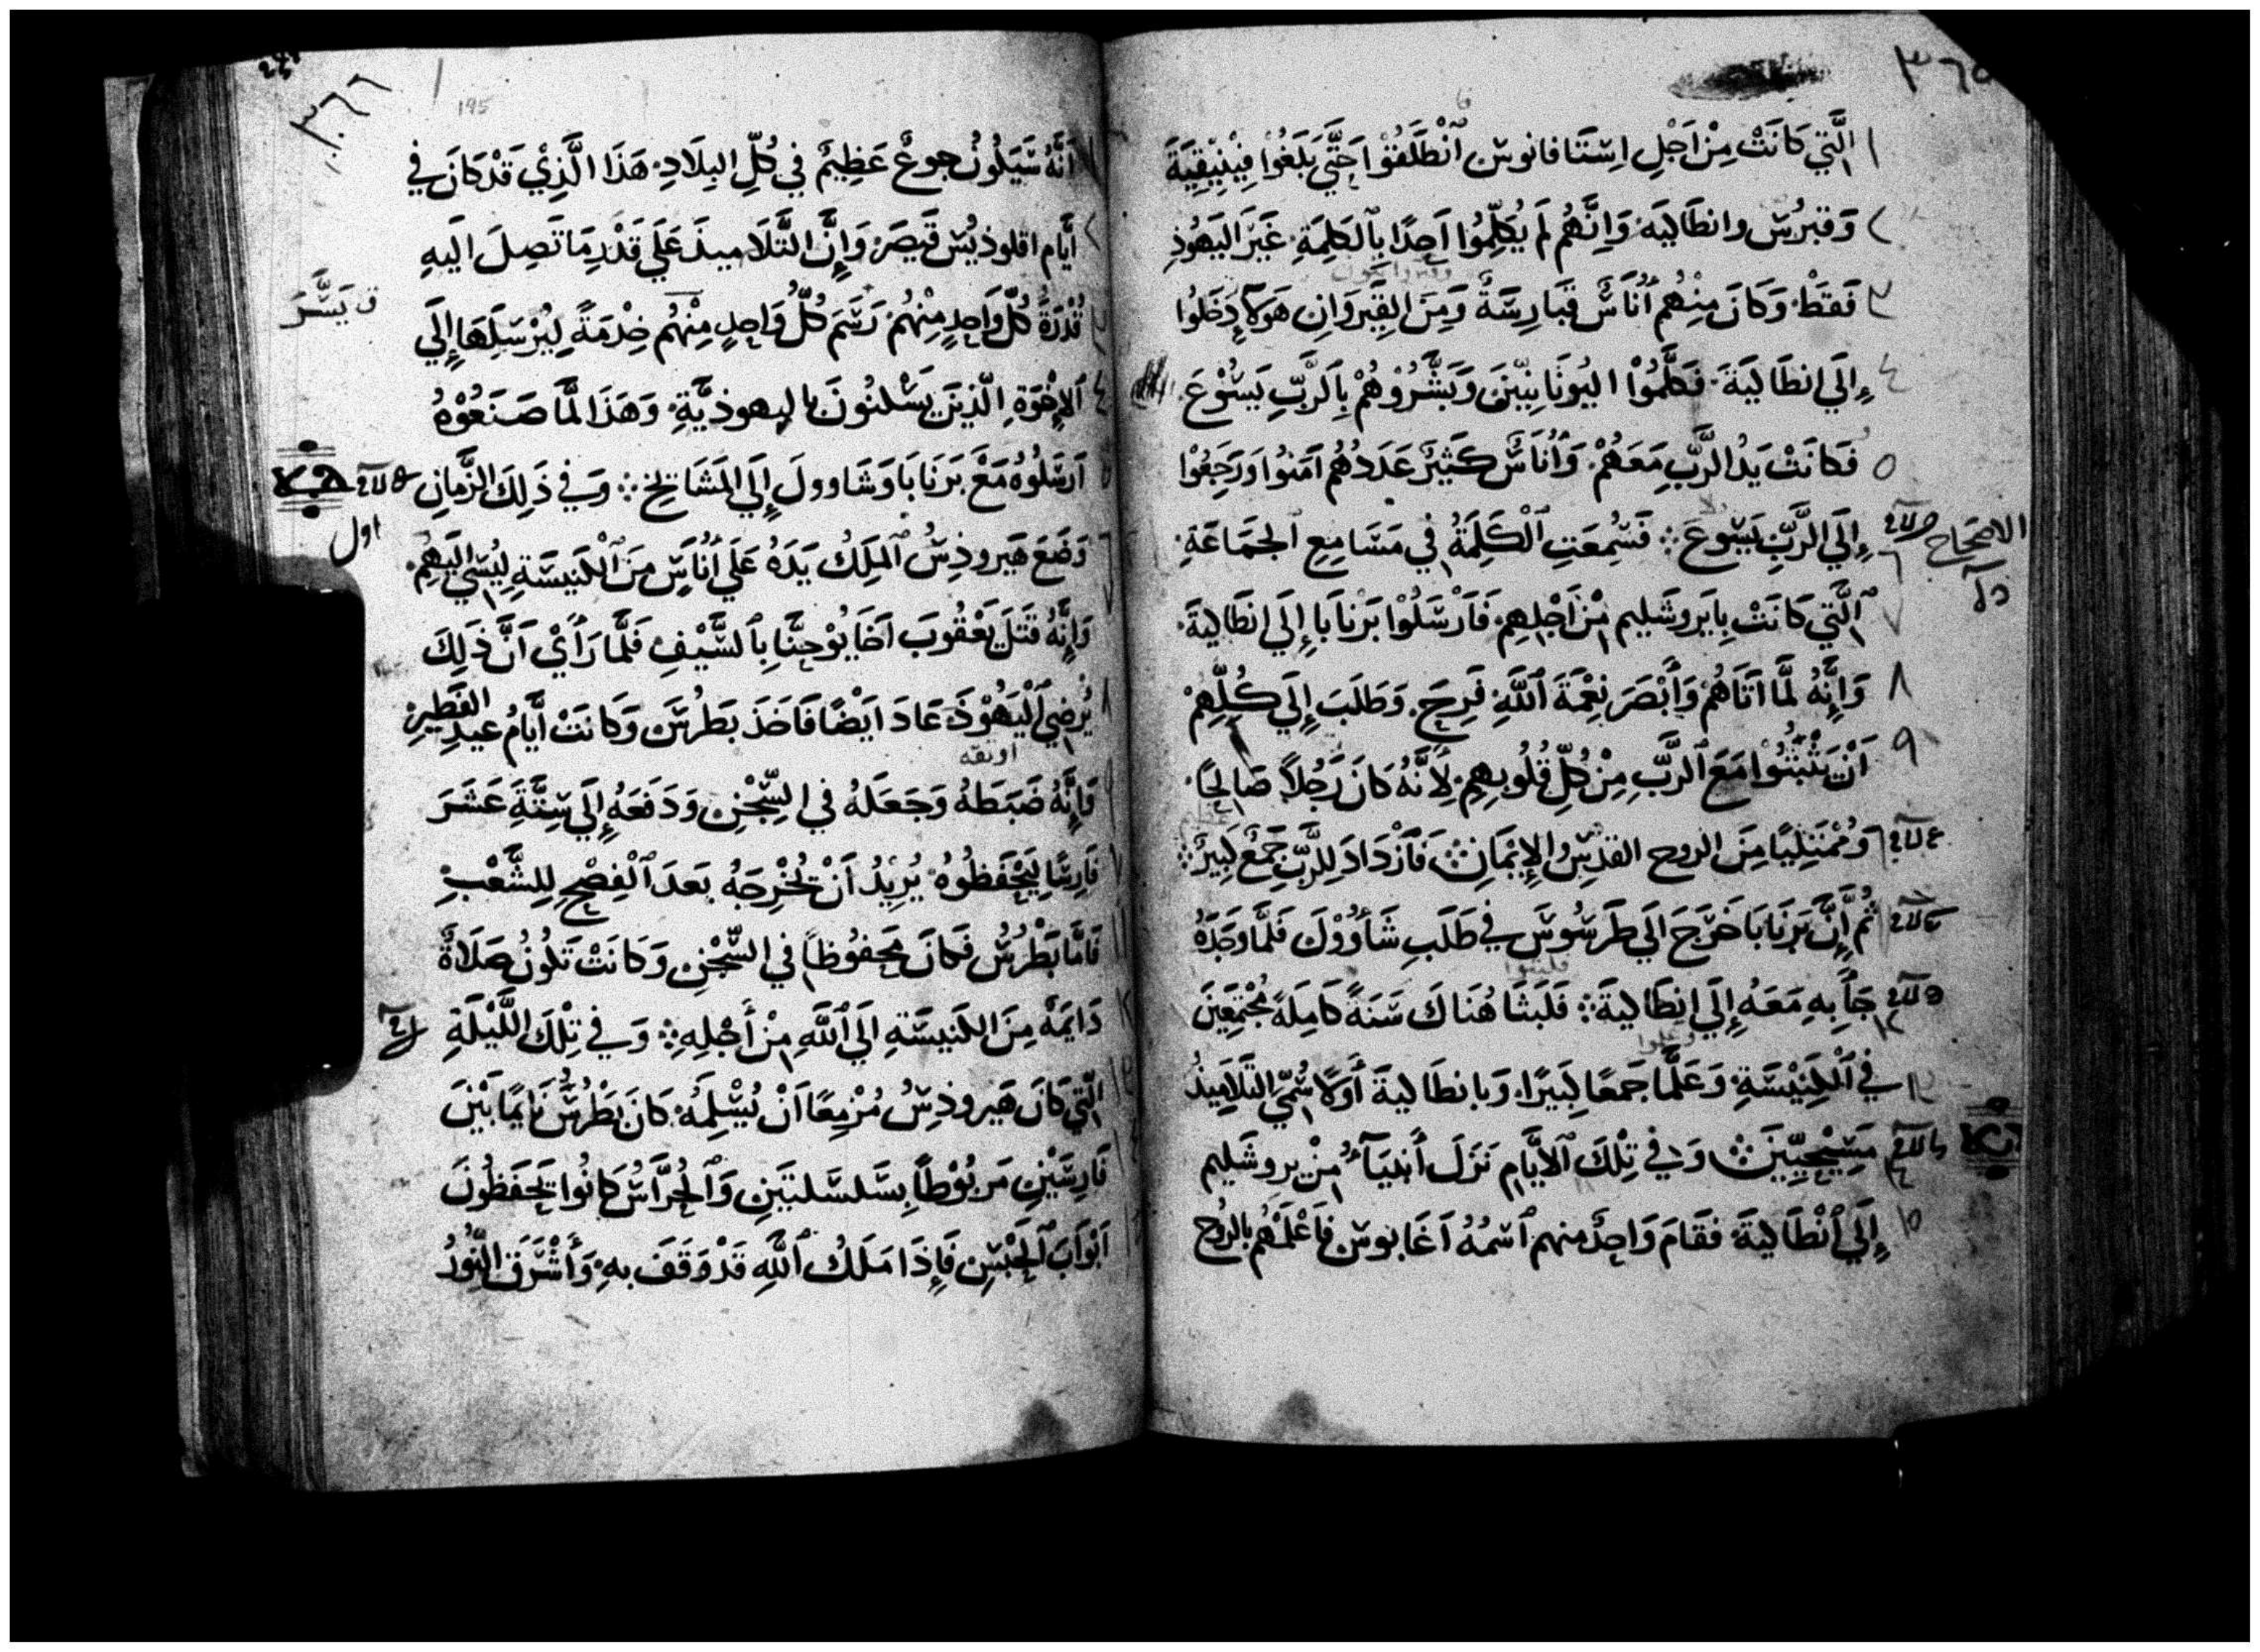 ٣٦٥
١ الَّتِي كَانَتْ مِنْ اَجْلِ اِسْتَافانوس اَنْطَلَقُوْا حَتَّي بَلَغُوْا فِيْنِيْقِيَةَ
٢ وَقبرُس وانطَاليَه وَاِنَّهُم لَم يُكلِّمُوا اَحِدًا بِالكَلِمَةِ غَيْرَ اليَهُوْذِ
٣ فَقَطْ وَكَانَ مِنْهُم اُنَاسٌ قبَارِسَةٌ وَمَنَ القِيَروَانِ هَولَآ دَخَلُوا
٤ إِلَي انطَاليَةَ فَكَلَّمُوْا اليُونَانيّينَ وَبَشَّرُوْهُمْ بِالرَّبِّ يَسُوْعَ
٥ فَكانَتْ يَدُ الرَّبِّ مَعَهُمْ وَاُنَاسٌ كَثِيرٌ عَدَدُهُم آمَنُوا وَرَجِعُوْا
الاصحاح
٦ إِلَي الرَّبِّ يَسُوعَ فَسُمِعَتِ الْكَلِمَةُ في مَسَامِعِ الجَمَاعَةِ
٧ الَّتِي كَانَتْ بِايَروشَليم مِنْ اَجْلِهِم فَارْسَلُوْا بَرْنَابَا إِلَي انطَاليةَ
٨ وَاِنَّهُ لَمَّا اتَاهُمْ وَأَبْصَرَ نِعْمَةَ اللَّهِ فَرِحَ وَطَلَبَ إِلَي كُلِّهِمْ
٩ اَنْ يَثْبُتُوا مَعَ الرَّبِّ مِنْ كُلِّ قُلُوبِهِم لِأَنَّهُ كَانَ رَجُلاً صَالِحًا
وَمُمْتَلِيًا مِنَ الروح القدُسِ وَالإِيْمَانِ فَازْدَادَ لِلرَّبِّ جَمْعٌ كَبِيرٌ
ثُم إِنَّ بَرنَابَا خَرَجَ الَي طَرسُوسَ في طَلَبِ شَاوُوْلَ فَلَمَّا وَجَدَهُ
فلبثوا
جَآ بِهِ مَعَهُ إِلَي انطَاليةَ فَلَبَثَا هُنَاكَ سَنَةً كَامِلَةً مُجْتَمِعَيْنَ
١٣ في الْكَنِيْسَةِ وَعَلَّمَا جَمعًا كَبيرًا وَبانطَاليةَ أَوَّلاً سُمّي التَّلَامِيذُ
مَسِيْحِيِّينَ وَفي تِلْكَ الأَيَّامِ نَزَلَ أَنبيَآءُ مِنْ يروشَليم
١٥ إِلَي اَنْطَاليةَ فَقَامَ وَاحِدٌ منهم اَسْمُهُ اَغَابوس فَاَعْلَمَهُم بالرُوح
٣٦٦
195
اَنَّهُ سَيَكُونُ جوعٌ عَظِيمٌ في كُلِّ البِلَادِ هَذَا الَّذِيْ قَدْ كَانَ في
أيَّام اقلوذيُس قَيصَرَ وَإِنَّ التَّلَاميذَ عَلَي قَدْرِ مَا تَصِلَ اليهِ
قُدْرَةُ كُلّ وَاحِدٍ مِنْهُم رَسَمَ كُلُّ وَاحِدٍ مِنْهُم خِدْمَةً لِيُرْسَلَهَا إِلَي
ق يَسَّرَ
الإِخْوَةِ الَّذينَ يَسْكنُونَ باليهوذيَّةِ وَهَذَا لَمَّا صَنَعُوْهُ
اَرسَلُوُه مَعْ بَرنَابَا وَشَاوولَ إِلَي المَشَايخ وَفي ذَلِكَ الزَّمانِ
اول
وَضَعَ هَيروذِسُ المَلِكُ يَدَهُ عَلَي اُنَاسٍ مِنَ الْكَنِيسَةِ ليُسيَ اليهِم
وَإِنَّهُ قَتَلَ يَعْقُوبَ اَخَا يُوْحَنَّا بِالسَّيْفِ فَلَمَّا رَأَيْ اَنَّ ذَلِكَ
يُرضِي الْيَهُوْذَ عَادَ ايَضًا فَاخَذَ بَطرُسَ وَكَانَتْ أيَّامُ عيدِ الفَطِير
اوثقه
وَإِنَّهُ ضَبَطَهُ وَجَعَلهُ في السِّجْنِ وَدَفَعَهُ إِلَي سِتَّةَ عَشَرَ
فَارِسًا لِيَحْفَظُوُه يُرِيْدُ اَنْ يُخْرِجَهُ بَعدَ الْفِصْحِ لِلشَّعْبِ
فَامَّا بَطْرُسُ فَكانَ مَحفُوظًا في السِّجْنِ وَكَانَتْ تَكُونُ صَلَاةٌ
دَايمَةٌ مِنَ الكَنيسَةِ الَي اللَّهِ مِنْ أَجْلِهِ وَفي تِلْكَ اللَّيْلَةِ
الَّتي كَانَ هَيروذِسُ مُزْمِعًا اَنْ يُسْلِمَهُ كَانَ بَطْرُسُ نَايمًا بَيْنَ
فَارِسَيْنِ مَربُوْطًا بِسَلسَلتَيَنِ وَالحُرَّاسُ كَانُوا يَحفَظُونَ
اَبْوَابَ الحَبْسِ فَإِذَا مَلَكُ اللَّهِ قَدْ وَقَفَ بهِ وَأَشْرَقَ النُّورُ